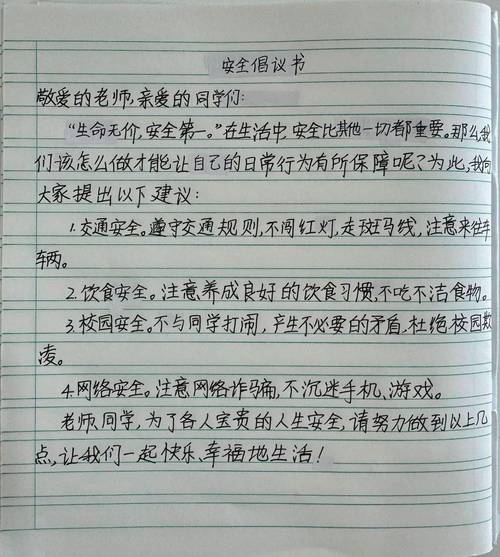 安全倡议书
敬爱的老师,亲爱的同学们:
“生命无价,安全第一。”在生活中,安全比其他一切都重要。那么,我
们该怎么做才能让自己的日常行为有所保障呢?为此,我向
大家提出以下建议:
1.交通安全。遵守交通规则,不闯红灯,走斑马线,注意来往车
车两。
2.饮食安全。注意养成良好的饮食习惯,不吃不洁食物。
3.校园安全。不与同学打闹,产生不必要的矛盾,杜绝校园欺
凌。
4.网络安全。注意网络诈骗,不沉迷手机、游戏。
老师、同学,为了各人宝贵的人生安全,请努力做到以上几
点,让我们一起快乐、幸福地生活!